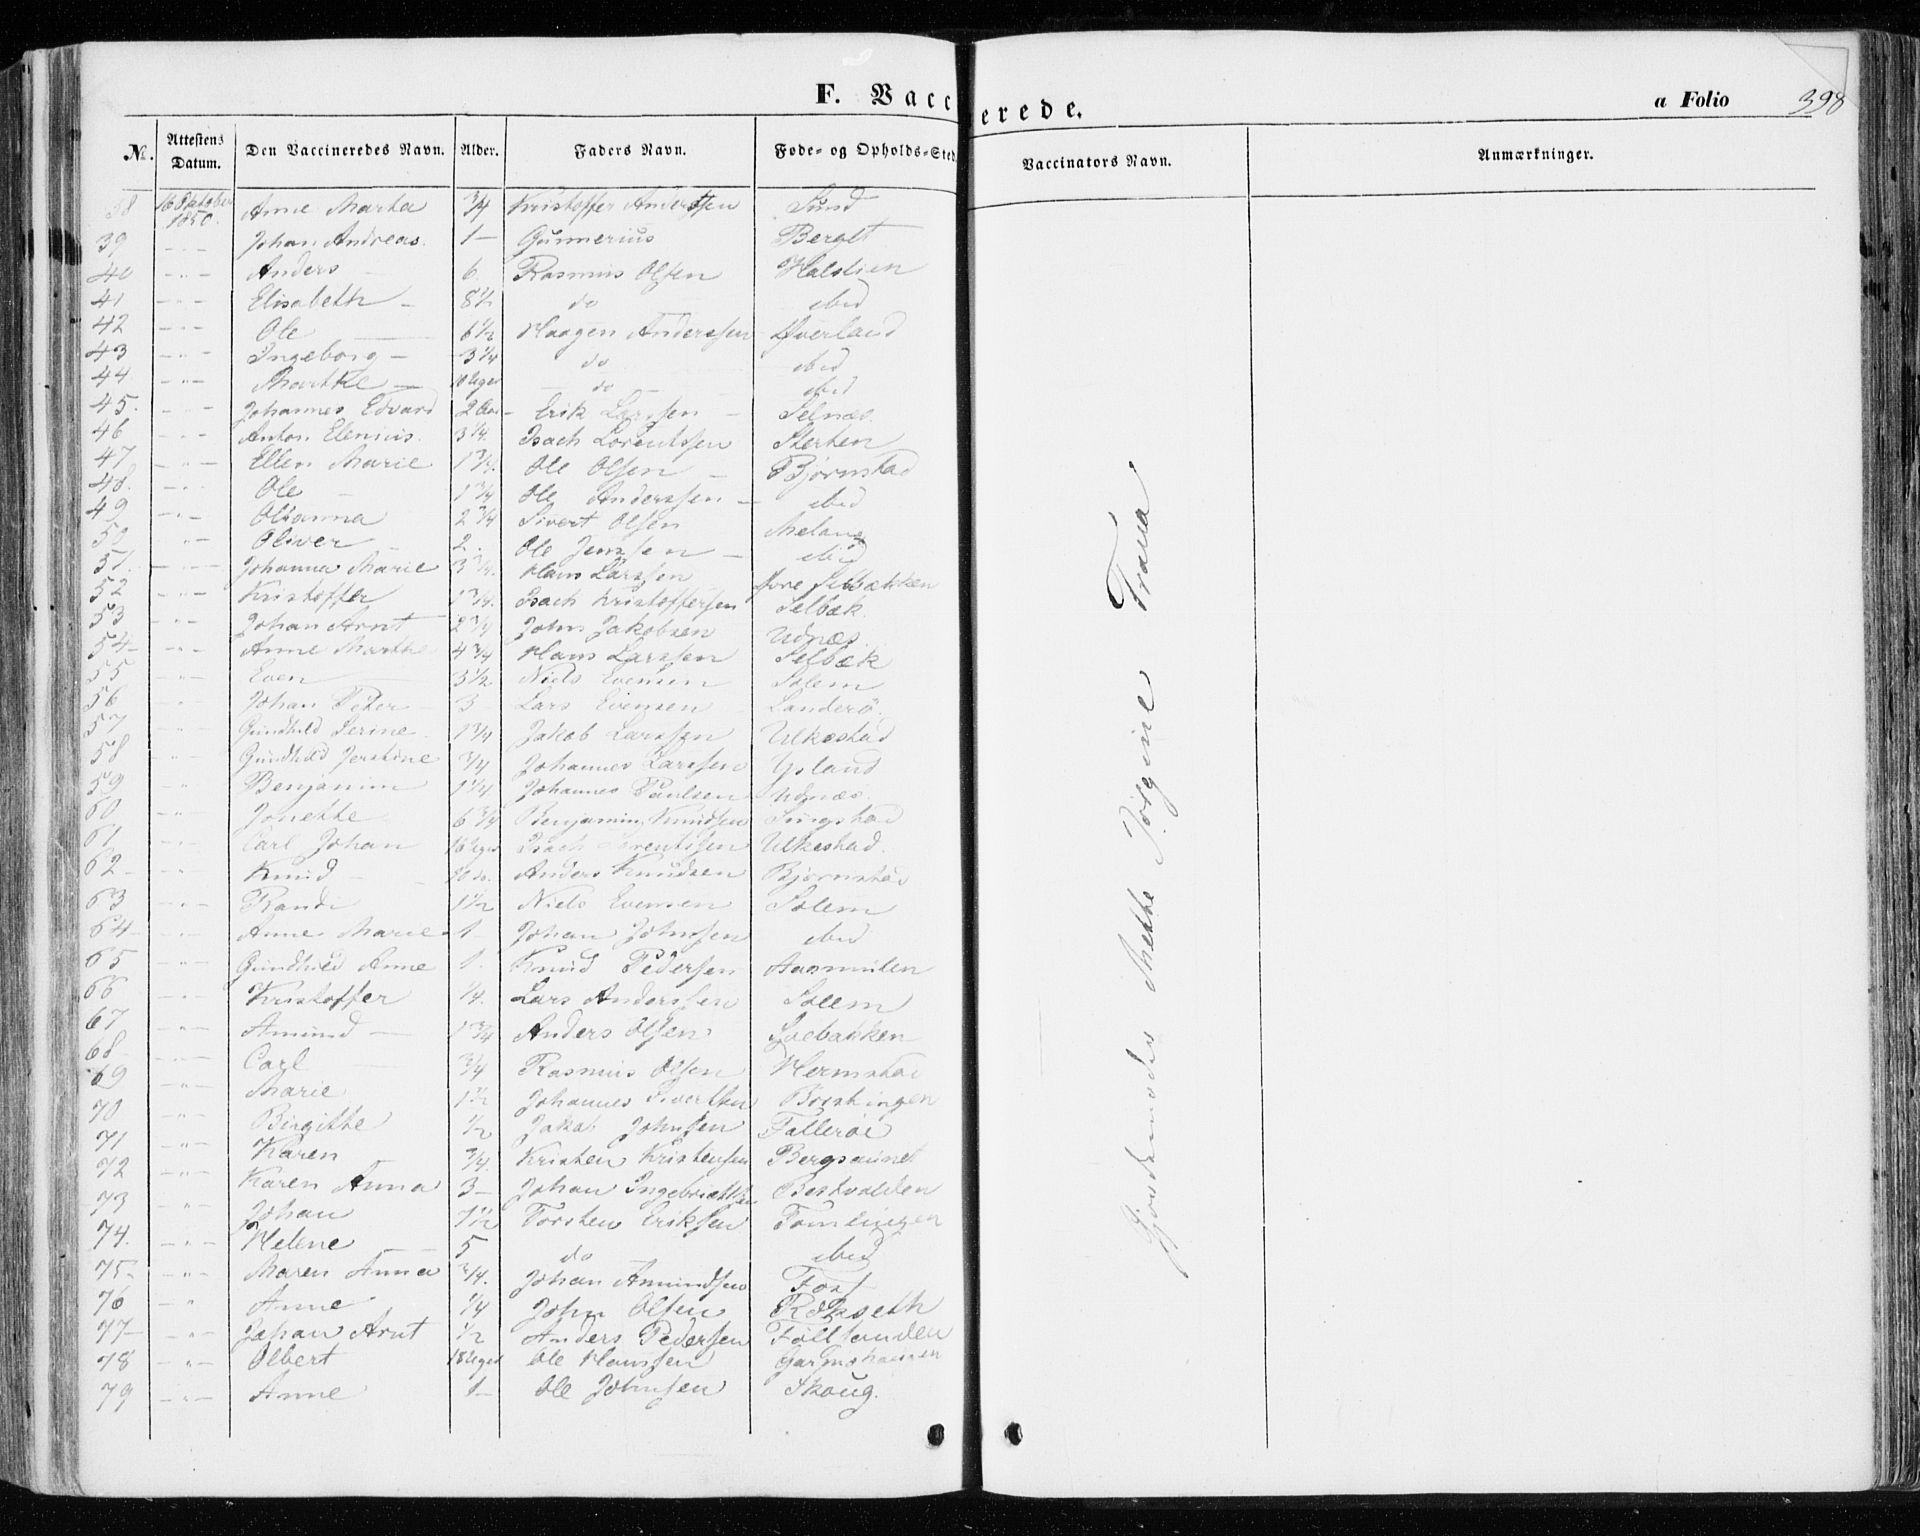 F. Vaccinerede.
a Folio 398
No. Attestens Datum. Den Vaccineredes Navn. Alder. Faders Navn. Føde- og Opholds-Sted Vaccinators Navn. Anmærkninger.
38 16 Oktober 1850. Anne Marta 3/4 Kristoffer Anderssen Sund
39 -"- Johan Andreas. 1- Gunnerius Berglt
40 -"- Anders 6. Rasmus Olsen Halstien
41 -"- Elisabeth - 8 1/2 do ibid
42 -"- Ole 6 1/2 Haagen Anderssen Øverland
43 -"- Ingeborg - 3 1/4 do ibid
44. -"- Marthe - Uger do ibid
45. -"- Johannes Edvard 2 Aar- Erik Larssen - Selnæs.
46 -"- Anton Elenius. 3 1/4. Isach Lorentssen Sterten
47 -"- Ellen Marie 1 3/4. Ole Olsen - Bjørnstad
48. -"- Ole - 1 3/4 Ole Anderssen - ibid
49 -"- Olianna 2 3/4 Sivert Olsen Melan
50 -"- Oliver 2. Ole Jenssen - ibid
51. -"- Johanna Marie 3 3/4. Hans Larssen Øvre Selbækken
52 -"- Kristoffer 1 3/4. Isach Kristoffersen Selbæk.
53 -"- Johan Arnt 2 3/4 John Jakobsen Udnæs
54- -"- Anne Marthe 4 3/4 Hans Larssen Selbæk
55 " Even 3 1/2 Niels Evensen Solem
56 -"- Johan Peter 3 Lars Evensen Landerø.
57 -"- Gundhild Serine. 1 3/4 Jakob Larssen Ulkestad
58 -"- Gundhild Jerstine 3/4 Johannes Larssen Ysland
59 -"- Benjamin 1 1/4 Johannes Paulsen Udnæs.
60 -"- Jonette 6 3/4 Benjamin Knudsen Singstad
61 -"- Carl Johan 16 Uger Isach Lorentssen Ulkestad.
62- -"- Knud 10 do. Anders Knudsen Bjørnstad
63 -"- Randi 1 1/2 Niels Evensen Solem
64- -"- Anne Marie - 1- Johan Johnsen ibid
65 -"- Gundhild Anne 1. Knud Pedersen Aasmulen
66 -"- Kristoffer 1/4. Lars Anderssen Solem
67 -"- Amund - 1 3/4 Anders Olsen Soebakken
68- -"- Carl 3/4 Rasmus Olsen Hermstad
69 -"- Marie 1 1/2 Johannes Sivertsen Borstingen
70 -"- Birgitte 1/2 Jakob Johnsen Fallerøe
71 -"- Karen 3/4. Kristen Kristensen Bergsaunet
72 -"- Karen Anna 3- Johan Ingebrigtsen Bestvolden
73 -"- Johan 7 1/2 Torsten Eriksen Tomlingen
74. -"- Helene 5 do ibid
75- -"- Maren Anna 3/4. Johan Amundsen Foss
76 " Anne 1/4 John Olsen Røkseth
77- -"- Johan Arnt 1/2 Anders Pedersen Follsanden
78 -"- Olbert 18 Uger Ole Hanssen
79 -"- Anne 1- Ole Johnsen Skoug.
Gjordemoder Mette Jørgine Frana